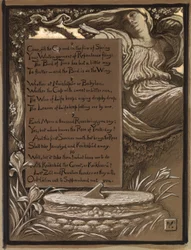 Come, fill the Cup, and in the fire of Spring
Your Winter-garment of Repentance fling:
The Bird of Time has but a little way
To flutter—and the Bird is on the Wing.
Whether at Naishapur or Babylon,
Whether the Cup with sweet or bitter run,
The Wine of Life keeps oozing drop by drop,
The Leaves of Life keep falling one by one.
Each Morn a thousand Roses brings, you say;
Yes, but where leaves the Rose of Yesterday?
And this first Summer month that brings the Rose
Shall take Jamshyd and Kaikobad away.
Well, let it take them! What have we to do
With Kaikobad the Great, or Kaikhosru?
Let Zal and Rustum bluster as they will,
Or Hatim call to Supper—heed not you.